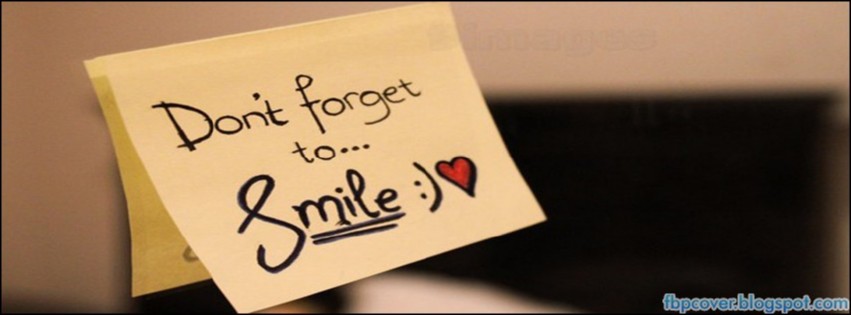 Don't forget
to...
Smile :)
fbpcover.blogspot.com